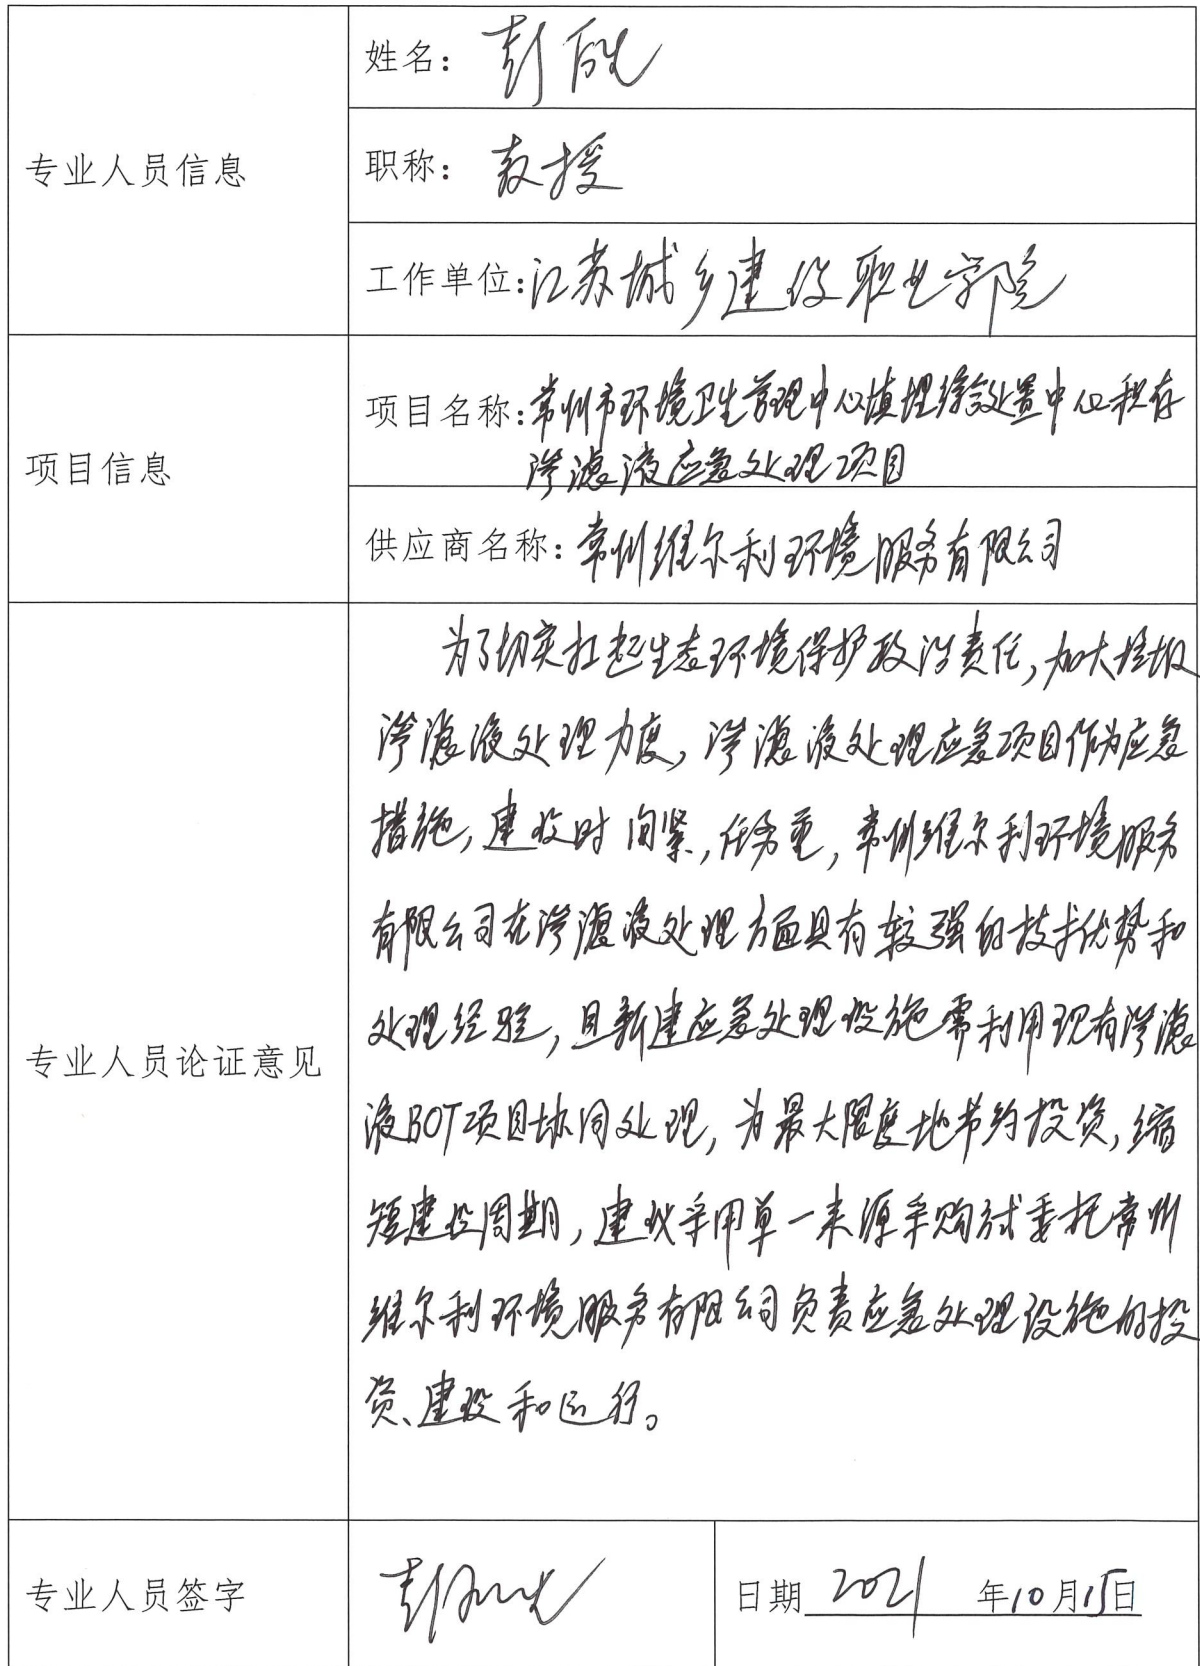 姓名：彭
专业人员信息
职称：教授
工作单位：江苏城乡建设职业学院
项目信息
项目名称：常州市环境卫生管理中心填埋综合处置中心积存
渗滤液应急处理项目
供应商名称：常州维尔利环境服务有限公司
专业人员论证意见
为了切实扛起生态环境保护政治责任，加大垃圾
渗滤液处理力度，渗滤液处理应急项目作为应急
措施，建设时间紧，任务重，常州维尔利环境服务
有限公司在渗滤液处理方面具有较强的技术优势和
处理经验，且新建应急处理设施需利用现有渗滤
液BOT项目协同处理，为最大限度地节约投资，缩
短建设周期，建议采用单一来源采购方式委托常州
维尔利环境服务有限公司负责应急处理设施的投
资、建设和运行。
专业人员签字 彭
日期 2021 年10月15日